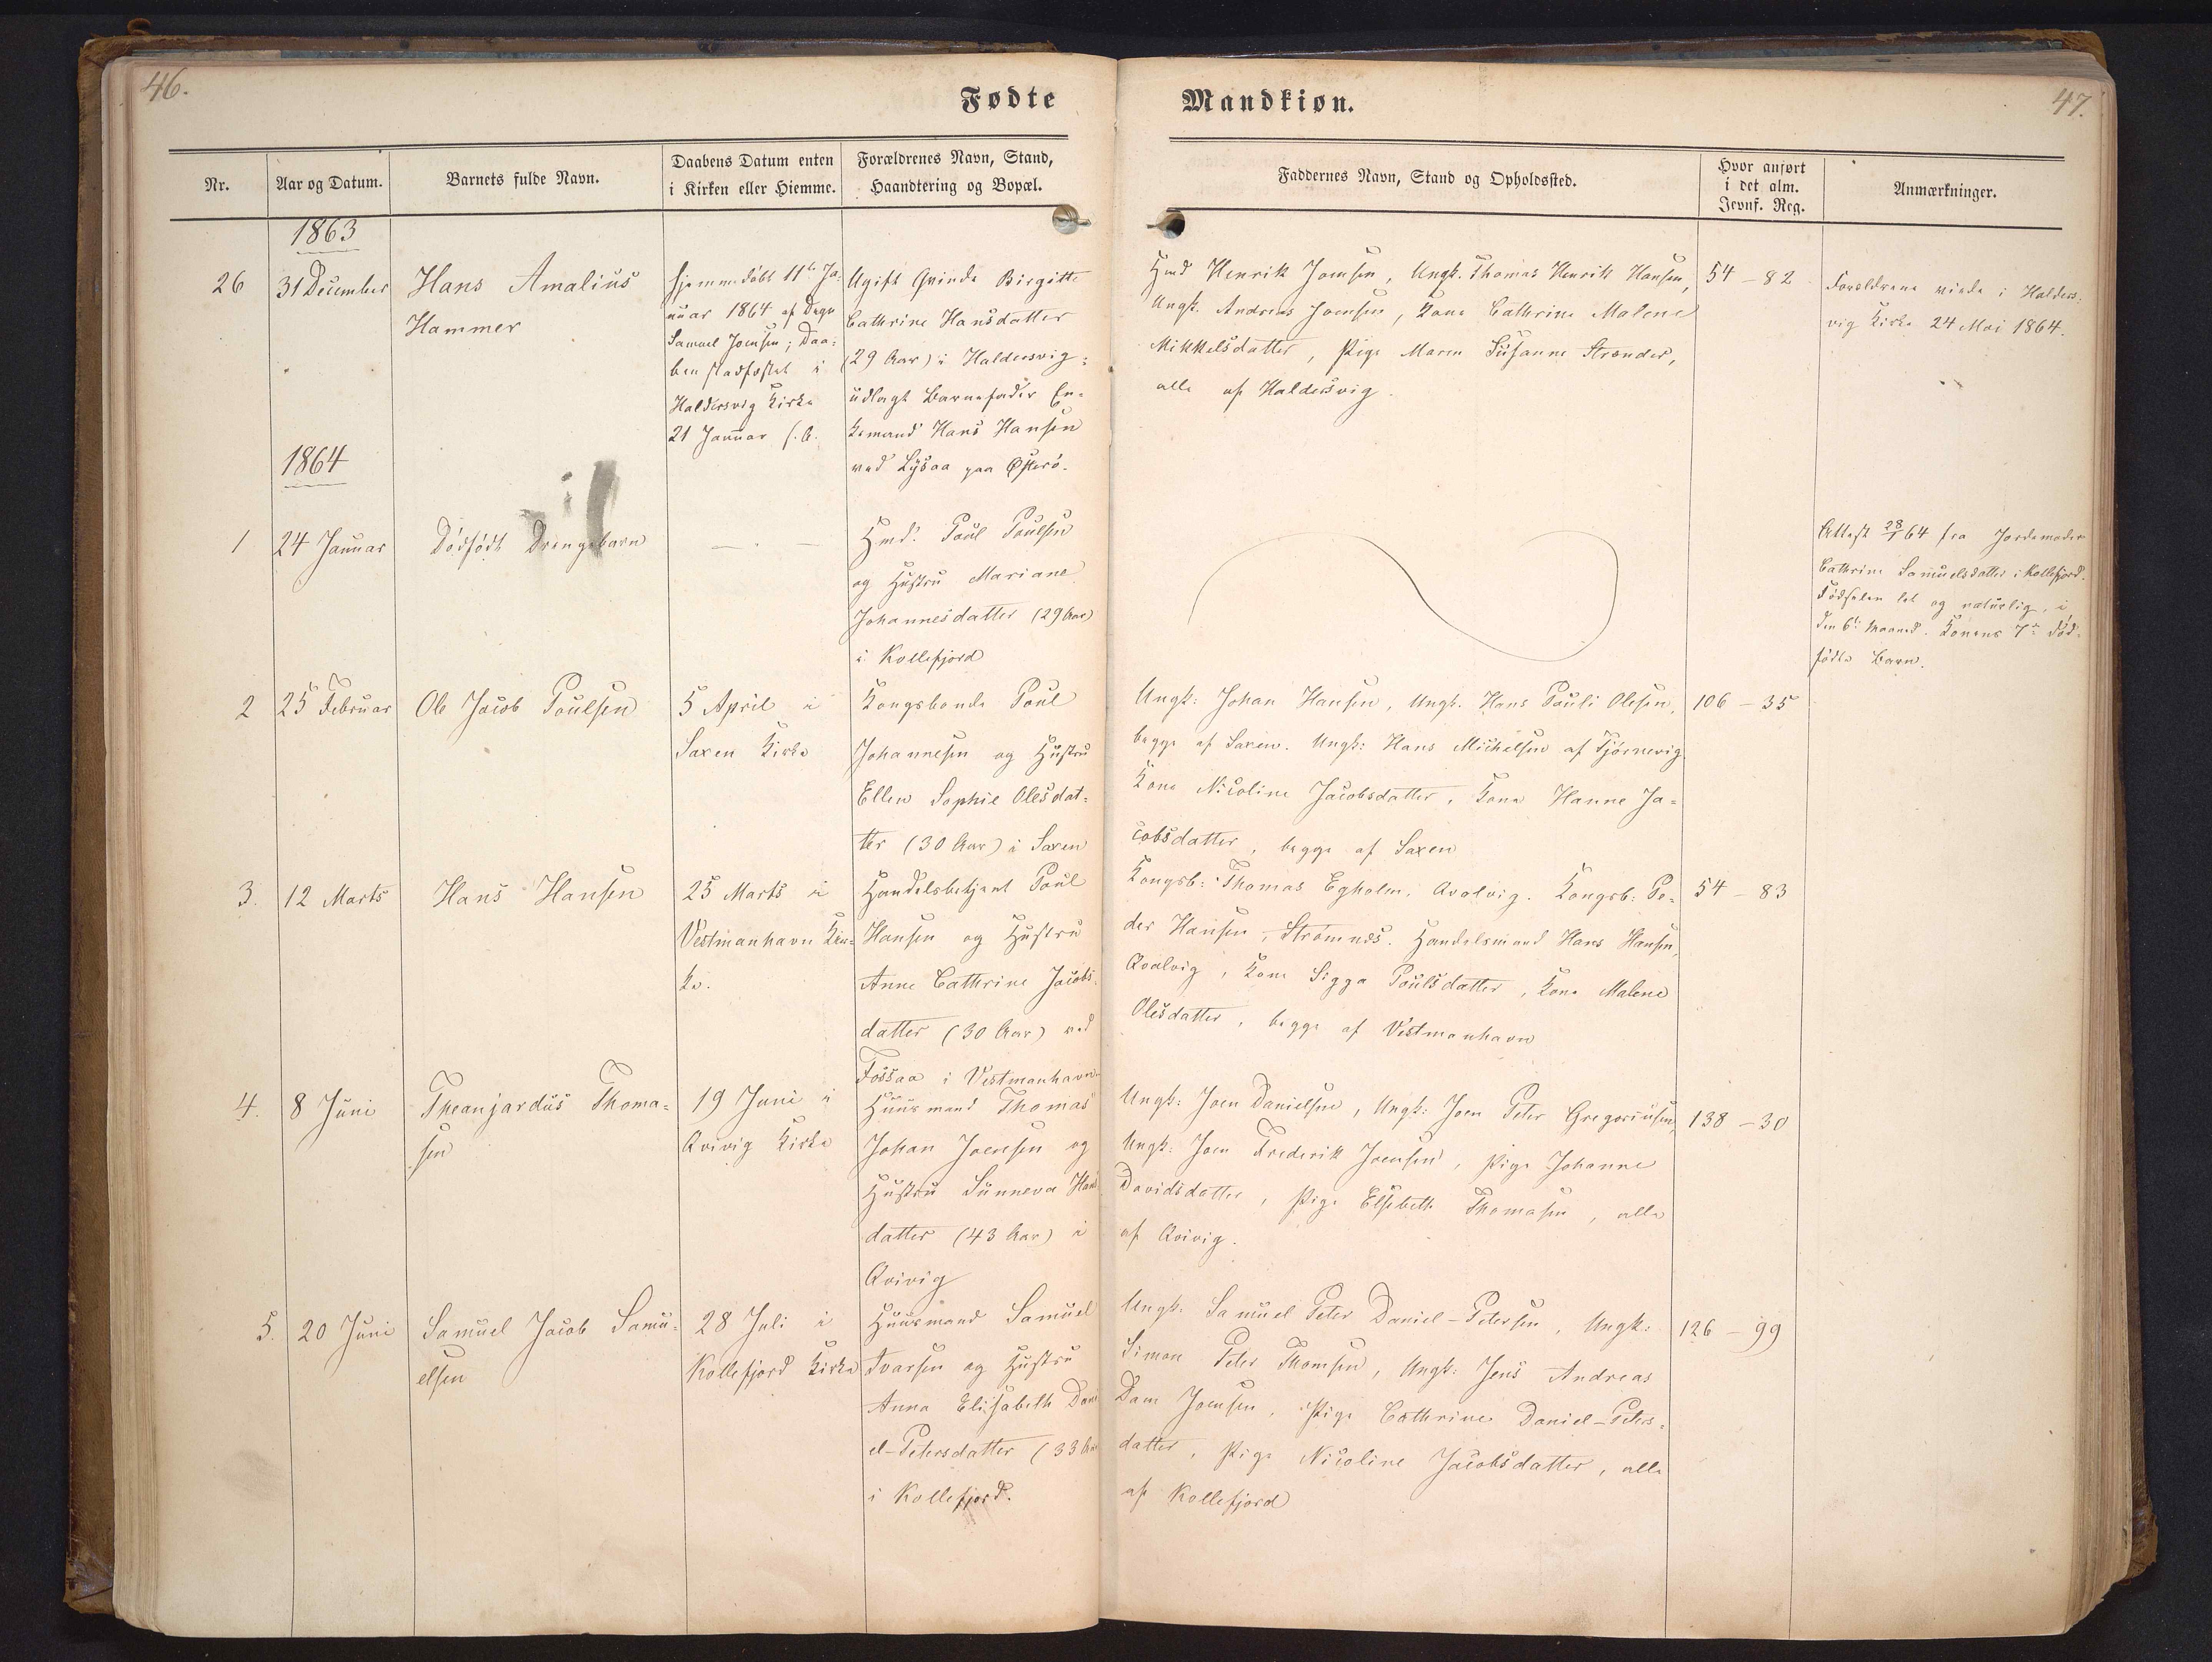 46.
Fødte
Nr.
Aar og Datum.
Barnets fulde Navn.
Daabens Datum enten
i Kirken eller Hiemme.
Forældrenes Navn, Stand,
Haandtering og Bopæl.
1863
26
31 December
Hans Amalius
Hammer
Hjemmedøbt 11te Ja-
nuar 1864 af Degn
Samuel Joensen; Daa-
ben stadfæstet i
Haldersvig Kirke
21 Januar s. A.
Ugift Qvinde Birgitte
Cathrine Hansdatter
(29 Aar) i Haldersvig;
udlagt Barnefader En-
kemand Hans Hansen
ved Lysaa paa Østerø.
1864
1
24 Januar
Dødfødt Drengebarn
— . —
Hmd. Poul Poulsen
og Hustru Mariane
Johannesdatter (29 Aar)
i Kollefjord
2
25 Februar
Ole Jacob Poulsen
5 April i
Saxen Kirke
Kongsbonde Poul
Johannesen og Hustru
Ellen Sophie Olesdat-
ter (30 Aar) i Saxen
3.
12 Marts
Hans Hansen
25 Marts i
Vestmanhavn Kir-
ke.
Handelsbetjent Poul
Hansen og Hustru
Anne Cathrine Jacobs-
datter (30 Aar) ved
Fossaa i Vestmanhavn
4.
8 Juni
Theanjardus Thoma-
sen
19 Juni i
Qvivig Kirke
Huusmand Thomas
Johan Joensen og
Hustru Sunneva Hans
datter (43 Aar) i
Qvivig
5.
20 Juni
Samuel Jacob Samu-
elsen
28 Juli i
Kollefjord Kirke
Huusmand Samuel
Ivarsen og Hustru
Anna Elisabeth Dani
el-Petersdatter (33 Aar
i Kollefjord.
Mandkiøn.
47.
Faddernes Navn, Stand og Opholdssted.
Hvor anført
i det alm.
Jevnf. Reg.
Anmærkninger.
Hmd Henrik Joensen, Ungk. Thomas Henrik Hansen,
Ungk. Andreas Joensen, Kone Cathrine Malene
Mikkelsdatter, Pige Maren Susanne Strænder,
alle af Haldersvig.
54 – 82
Forældrene viede i Halders-
vig Kirke 24 Mai 1864.
Attest 28/1 64 fra Jordemoder
Cathrine Samuelsdatter i Kollefjord.
Fødselen let og naturlig, i
den 6te Maaned. Konens 7de død-
fødte Barn.
Ungk: Johan Hansen, Ungk. Hans Pauli Olesen,
begge af Saxen. Ungk: Hans Michelsen af Tjørnevig
Kone Nicoline Jacobsdatter, Kone Hanne Ja-
cobsdatter, begge af Saxen
106 – 35
Kongsb: Thomas Egholm, Qvalvig. Kongsb: Pe-
der Hansen, Strømnæs. Handelsmand Hans Hansen,
Qvalvig, Kone Sigga Poulsdatter, Kone Malene
Olesdatter, begge af Vestmanhavn
54 – 83
Ungk: Joen Danielsen, Ungk: Joen Peter Gregoriusen,
Ungk: Joen Frederik Joensen, Pige Johanne
Davidsdatter, Pige Elsebeth Thomasen, alle
af Qvivig.
138 – 30
Ungk: Samuel Peter Daniel-Petersen, Ungk:
Simon Peter Thomsen, Ungk: Jens Andreas
Dam Joensen, Pige Cathrine Daniel-Peters-
datter, Pige Nicoline Jacobsdatter, alle
af Kollefjord
126 – 99